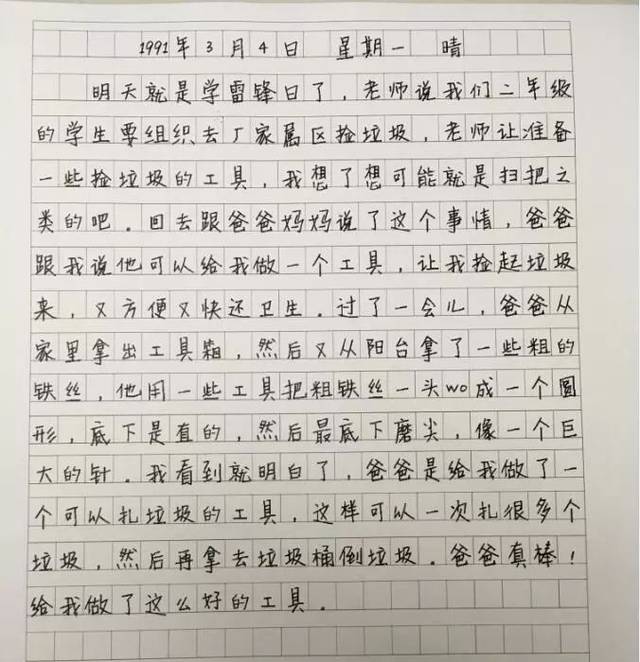 1991年3月4日 星期一 晴
明天就是学雷锋日了，老师说我们二年级
的学生要组织去厂家属区捡垃圾，老师让准备
一些捡垃圾的工具，我想了想可能就是扫把之
类的吧．回去跟爸爸妈妈说了这个事情，爸爸
跟我说他可以给我做一个工具，让我捡起垃圾
来，又方便又快还卫生．过了一会儿，爸爸从
家里拿出工具箱，然后又从阳台拿了一些粗的
铁丝，他用一些工具把粗铁丝一头wo成一个圆
形，底下是直的，然后最底下磨尖，像一个巨
大的针．我看到就明白了，爸爸是给我做了一
个可以扎垃圾的工具，这样可以一次扎很多个
垃圾，然后再拿去垃圾桶倒垃圾．爸爸真棒！
给我做了这么好的工具．